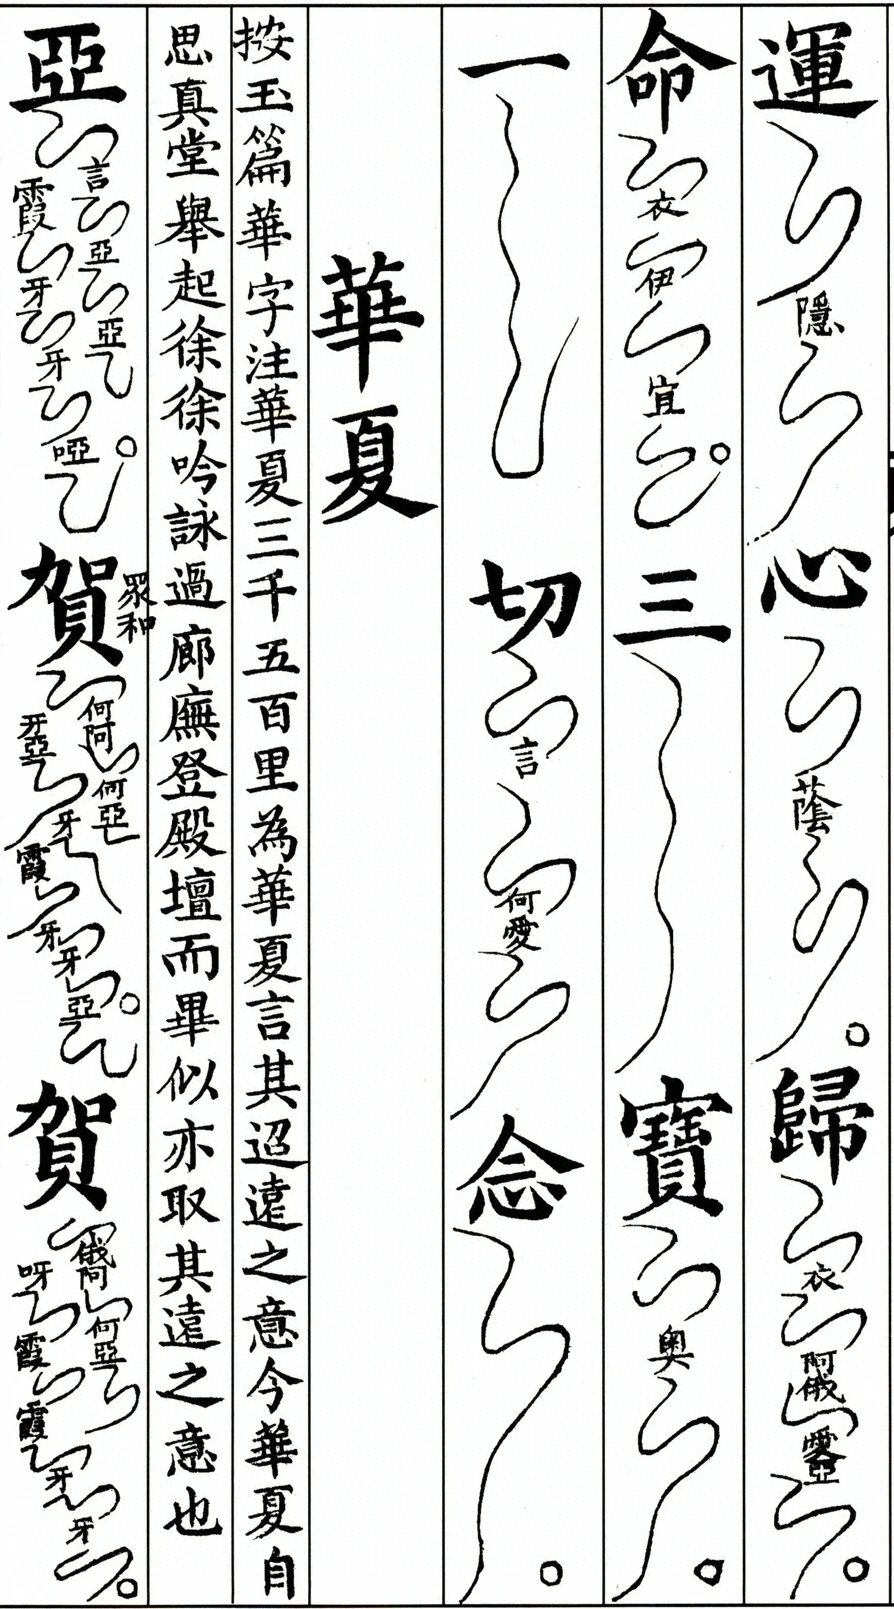 運隱心蔭歸衣阿俄愛亞
命衣伊宜三寶奧
一切言何愛念
華夏
按玉篇華字注華夏三千五百里為華夏言其迢遠之意今華夏自
思真堂舉起徐徐吟詠過廊廡登殿壇而畢似亦取其遠之意也
亞言亞亞霞牙牙啞賀眾和何阿何亞牙亞牙霞牙牙亞賀俄阿何亞呀霞霞牙牙